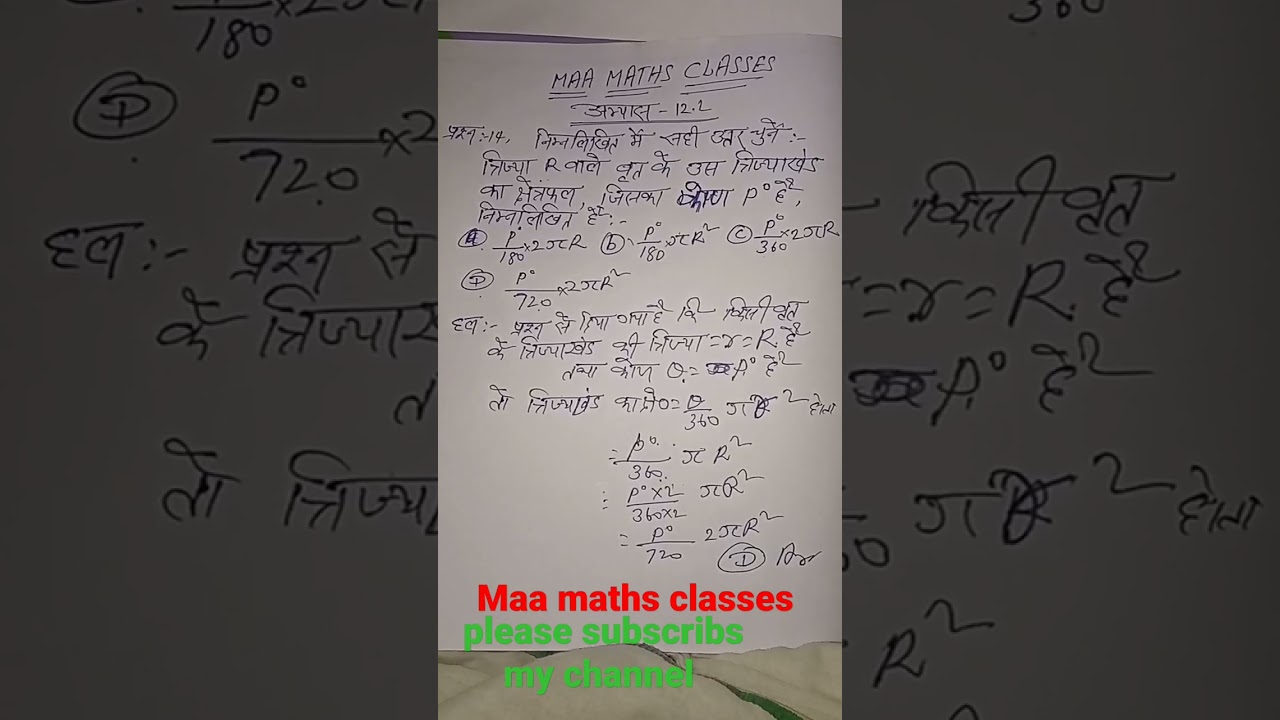 MAA MATHS CLASSES
अभ्यास - 12.2
प्रश्न:-14, निम्नलिखित में सही उत्तर चुनें:-
त्रिज्या R वाले वृत के उस त्रिज्याखंड
का क्षेत्रफल, जिसका कोण P° है,
निम्नलिखित है:-
(a) P/180 × 2πR (b) P°/180 × πR² (c) P°/360 × 2πR
(D) P°/720 × 2πR²
हल:- प्रश्न से दिया गया है कि किसी वृत
के त्रिज्याखंड की त्रिज्या = r = R. है
तथा कोण θ = P° है
तो त्रिज्याखंड का क्षे० = θ/360 πR² होता
= P°/360 πR²
= P°×2/360×2 πR²
= P°/720 2πR²
(D) Ans
Maa maths classes
please subscribs
my channel